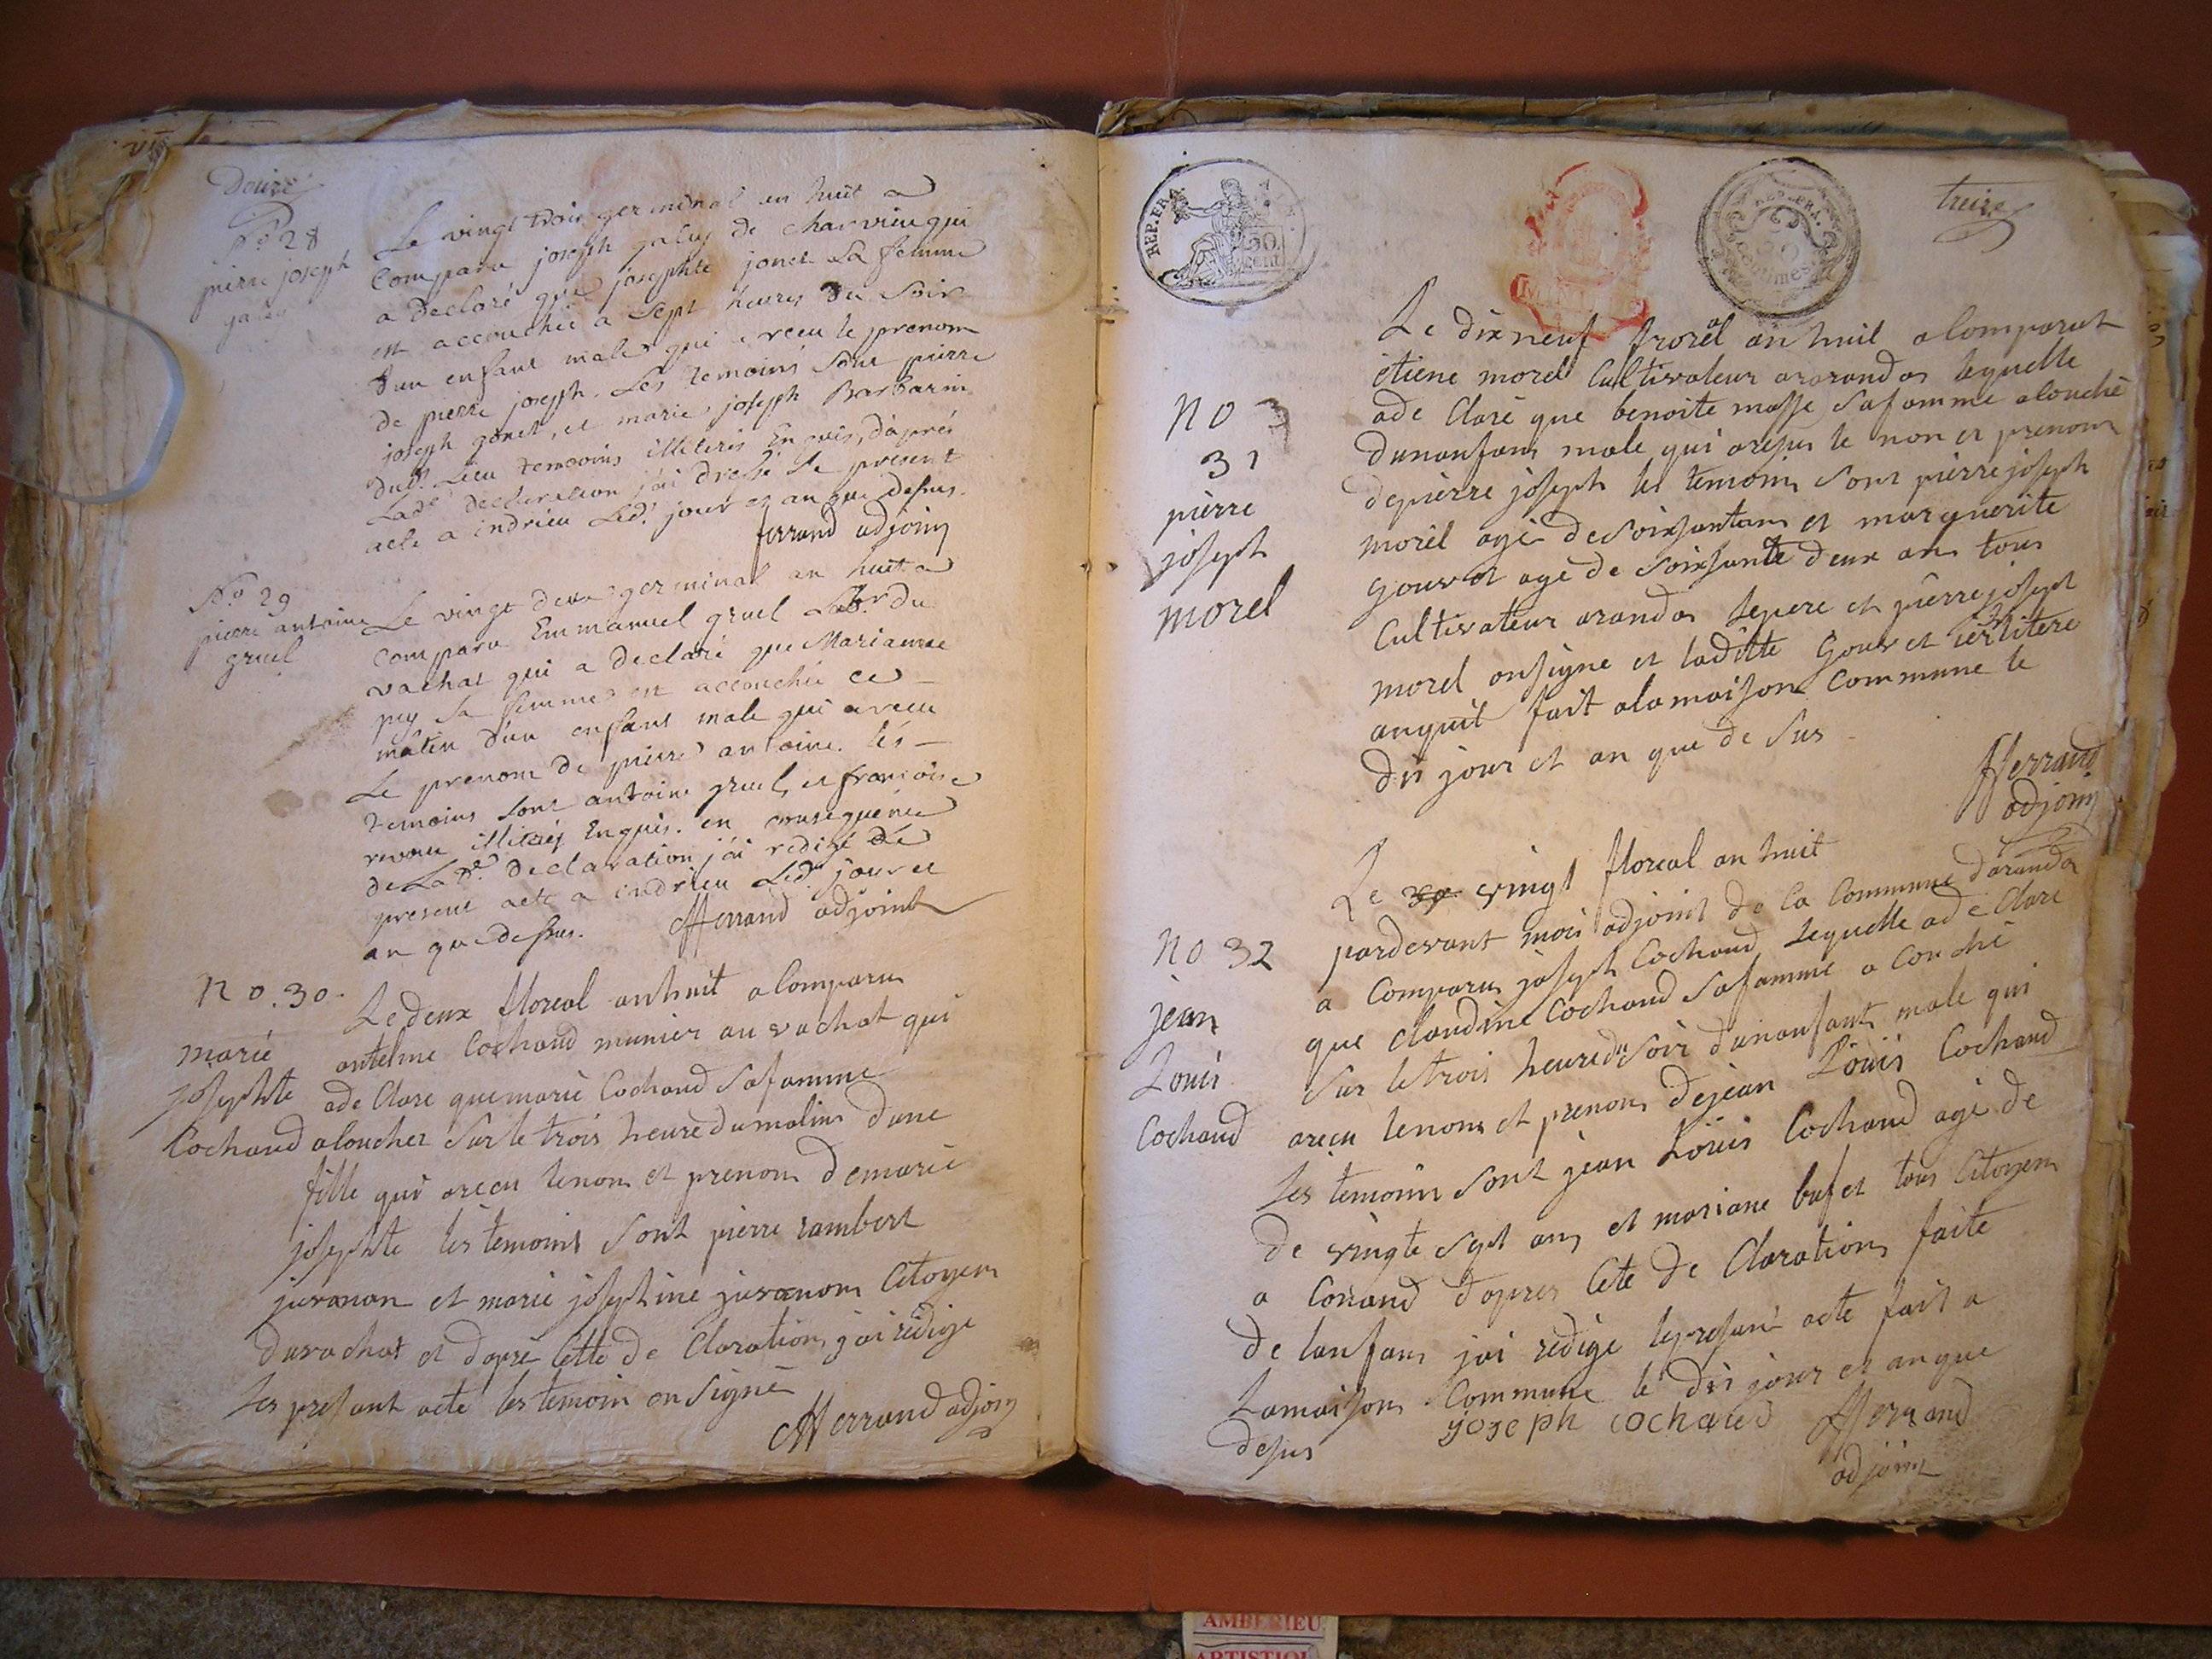 Douze
No 28
pierre joseph
galey
Le vingt trois germinal an huit a
comparu joseph galey de charvieu qui
a declaré que josephte jonet sa femme
est accouchée a sept heures du soir
d'un enfant male qui a recu le prenom
de pierre joseph. Les temoins sont pierre
joseph gonet, et marie joseph Barbarin
dud. Lieu temoins illiteris Enquis, d'après
Lade declaration j'ai dressé le present
acte a indrieu Led. jour et an que dessus.
ferrand adjoint
No 29
pierre antoine
gruel
Le vingt deux germinal an huit a
comparu Emmanuel gruel Labr du
vachat qui a declaré que Marianne
pey sa femme est accouchée ce
matin d'un enfant male qui a recu
Le prenom de pierre antoine. les
temoins sont antoine gruel, et francoise
illiterés Enquis. en consequence
de Lade declaration j'ai redigé le
present acte a indrieu Led. jour et
an que dessus. Herrand adjoint
no. 30.
marie
josephte
Cochand
Le deux floreal an huit a Comparu
antelme Cochand munier au vachat qui
ade Clare que marie Cochand sa famme
a Coucher sur le trois heure du matin dune
fille qui a recu le nom et prenom de marie
josephte les temoins sont pierre rambert
juvanon et marie josephine juvanon Citoyen
du vachat et dapré Cette de Claration jai rédige
les present acte les temoin on signé
Herrand adjoin
REP. FRA.
50.
cent.
REP. FRA.
50
centimes
treize
no
31
pierre
joseph
morel
Le dix neuf frorél an huit a Comparut
étiene morel Cultivateur a aranda lequelle
ade Claré que benoite masse sa famme a Couché
dun anfans male qui a resus le non et prenom
de pierre joseph les temoin sont pierre joseph
morél agé de soixsantans et marguerite
gouvet age de soixsante deux ans tous
Cultivateur aranda le pere et pierre joseph
morel on signe et laditte Gouvet
anquit fait a la maison Commune le
dis jour et an que de sus
Herrand
adjoin
no 32
jean
Louis
Cochand
Le vingt floreal an huit
pardevant moi adjoint de la Commune daranda
a Comparus joseph Cochand lequelle ade Clare
que claudine Cochand sa famme a Couché
sur le trois heure du soir dun anfant male qui
a recu le nom et prenom de jean Louis Cochand
les temoin sont jean Louis Cochand agé de
de vingte sept ans et mariane bufet tous Citoyen
a Conand dapres Cete de Claration faite
de lanfans jai redige le presant acte fait a
La maison Commune le dis jour et an que
desus
joseph cochand
Herrand
adjoin
AMBERIEU